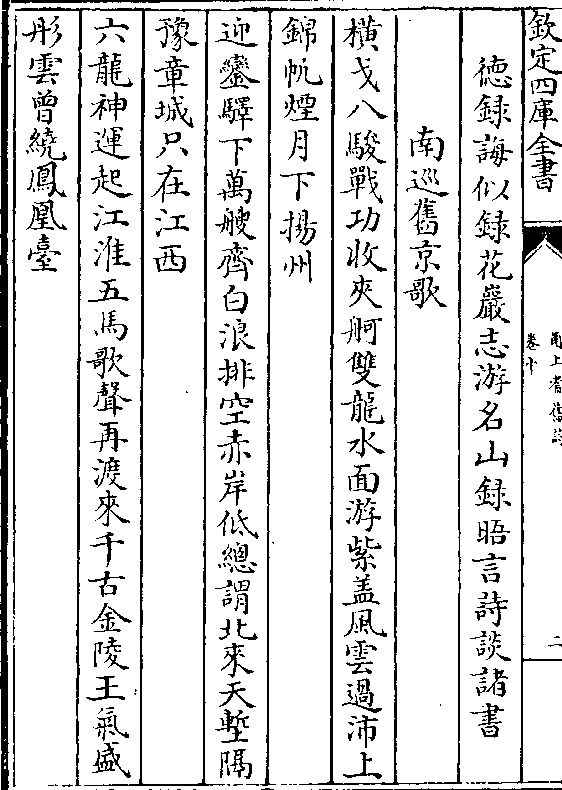 欽定四庫全書
甬上耆舊詩
卷十
二
德録誨似録花巖志游名山録晤言詩談諸書
南巡舊京歌
横戈八駿戰功收夾舸雙龍水面游紫盖風雲過沛上
錦帆煙月下揚州
迎鑾驛下萬艘齊白浪排空赤岸低總謂北來天塹隔
豫章城只在江西
六龍神運起江淮五馬歌聲再渡來千古金陵王氣盛
彤雲曾繞鳳凰臺